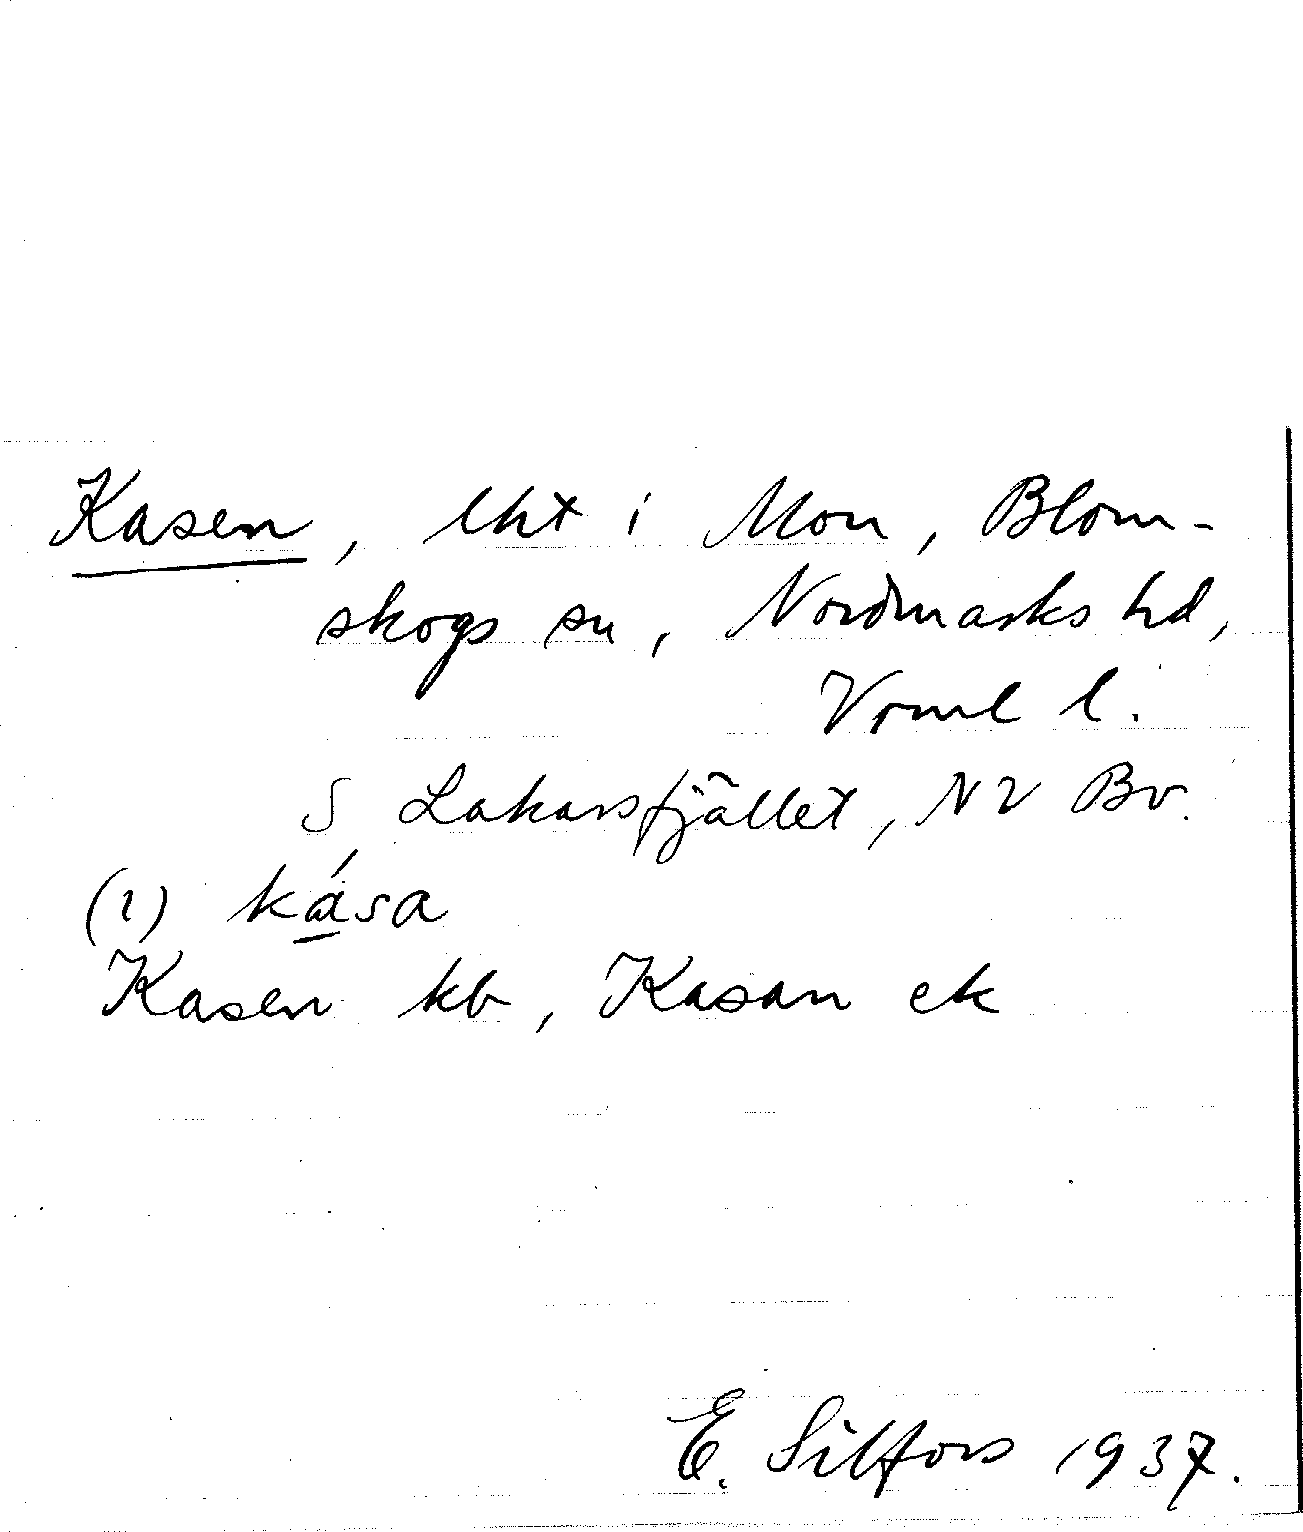 Kasen, lht i Mon, Blom-
skogs sn, Nordmarks hd,
Vrml l.
S Lakarsfjället, NV Bv.
(1) kása
Kasen kb, Kasan ek
E. Silfors 1937.